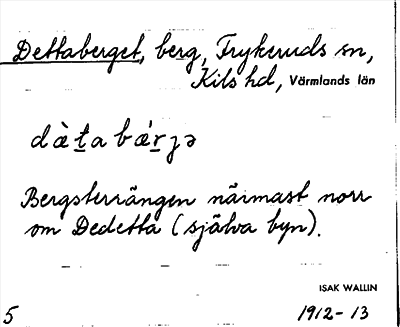 Dettaberget, berg, Frykeruds sn,
Kils hd, Värmlands län
dæ̀ṯa bǽr̠ʒə
Bergsterrängen närmast norr
om Dedetta (själva byn).
ISAK WALLIN
5 1912-13